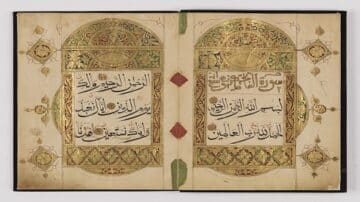 سورة الفاتحة
بسم الله الرحمن الرحيم
الحمد لله رب العالمين
الرحمن الرحيم ملك
يوم الدين إياك نعبد
وإياك نستعين اهدنا